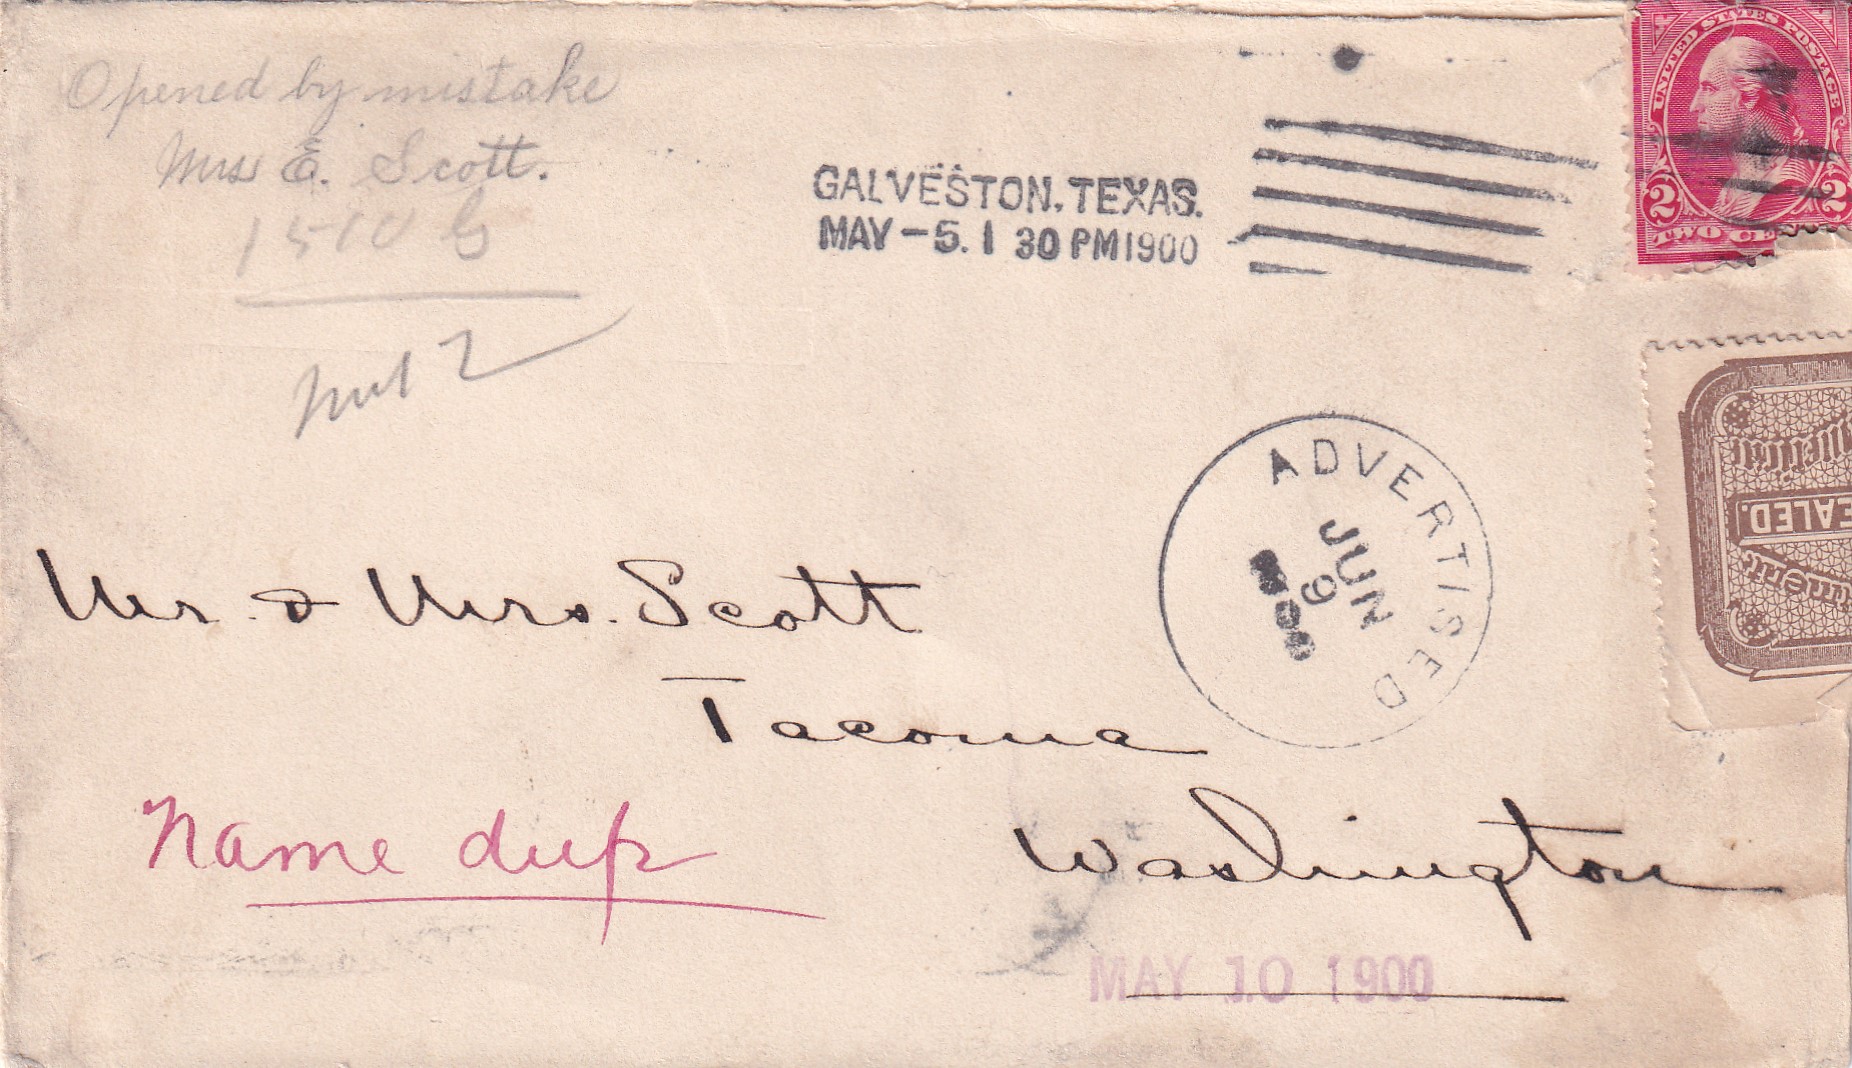 Opened by mistake
Mrs E. Scott.
1510 G
GALVESTON, TEXAS.
MAY - 5. 1 30 PM 1900
UNITED STATES POSTAGE
2 2
TWO CE
ADVERTISED
JUN
9
EALED.
Mr. & Mrs. Scott
Tacoma
Washington
Name dup
MAY 10 1900